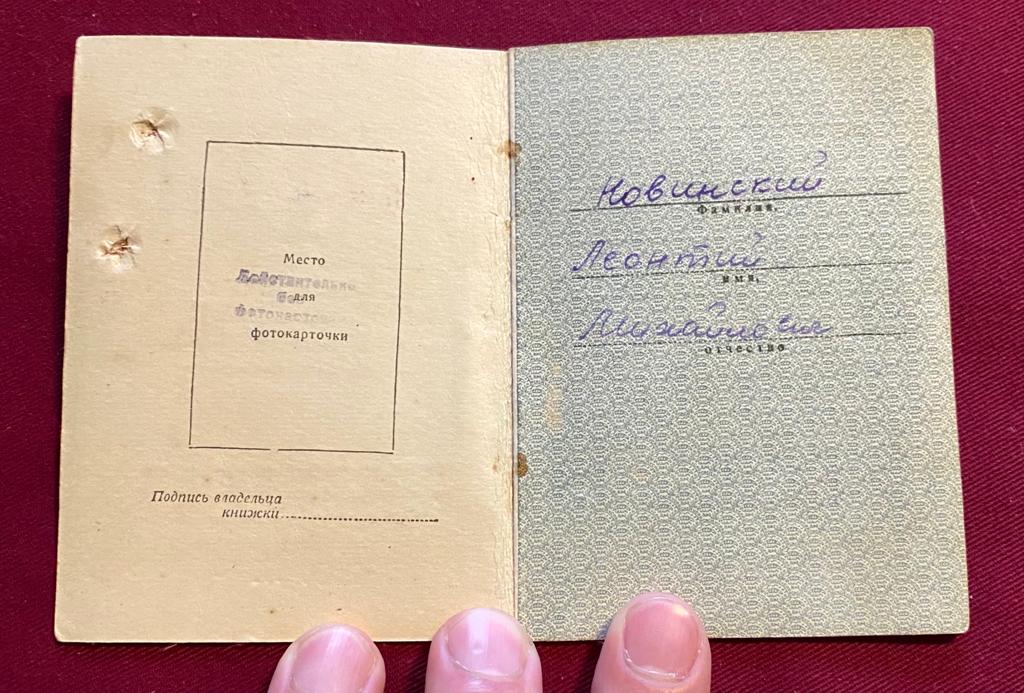 Место
Действительно
без
для
фотокарточки
Подпись владельца
книжки
Новинский
Фамилия,
Леонтий
имя,
Михайлович
отчество